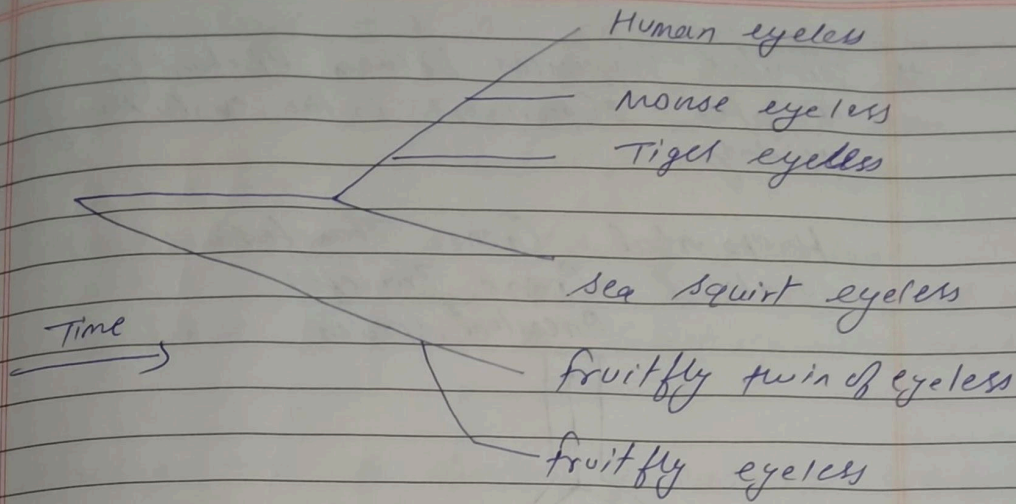 Human eyeless
Mouse eyeless
Tiger eyeless
sea squirt eyeless
Time
fruitfly twin of eyeless
fruitfly eyeless